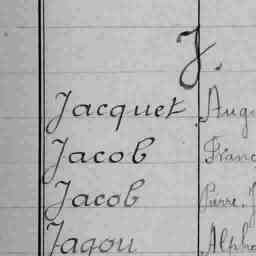 J.
Jacquet Aug
Jacob Franc
Jacob Pierre. J
Jagou Alpho